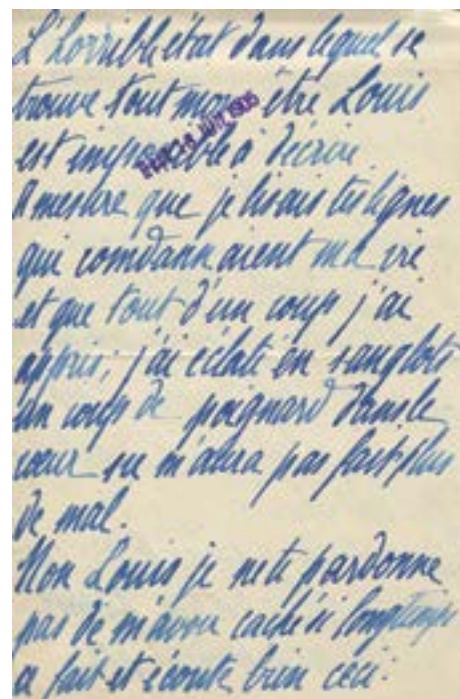 L'horrible état dans lequel se
trouve tout mon être Louis
est impossible à décrire
A mesure que je lisais tes lignes
qui comdannaient ma vie
et que tout d'un coup j'ai
appris, j'ai éclaté en sanglots
un coup de poignard dans le
cœur ne m'aura pas fait plus
de mal.
Mon Louis je ne te pardonne
pas de m'avoir caché si longtemps
ce fait et écoute bien ceci: